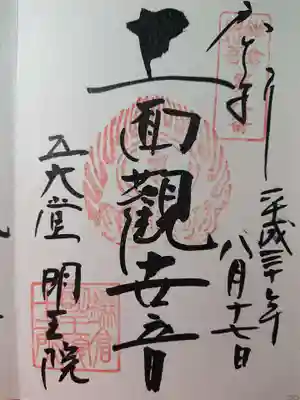 平成三十年
八月十七日
十一面觀世音
五大堂 明王院